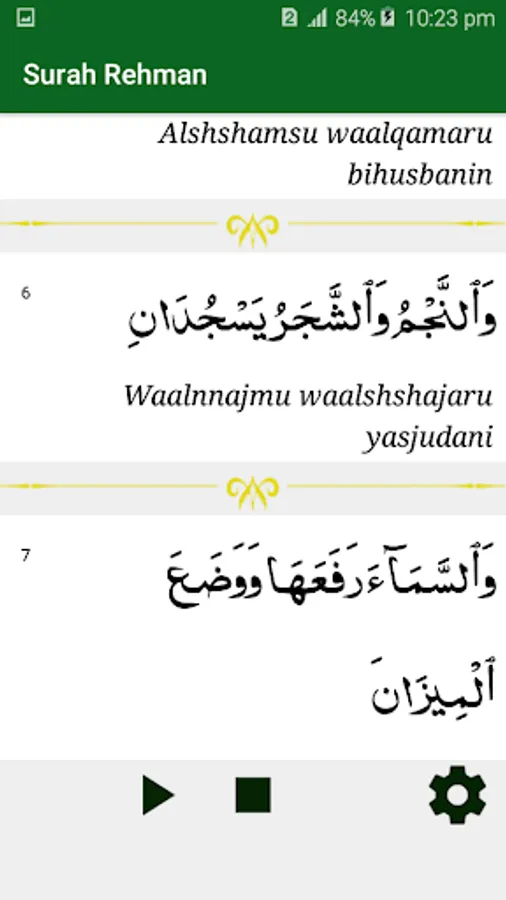 2 84% 10:23 pm
Surah Rehman
Alshshamsu waalqamaru
bihusbanin
6
وَٱلنَّجْمُ وَٱلشَّجَرُ يَسْجُدَانِ
Waalnnajmu waalshshajaru
yasjudani
7
وَٱلسَّمَآءَ رَفَعَهَا وَوَضَعَ
ٱلْمِيزَانَ